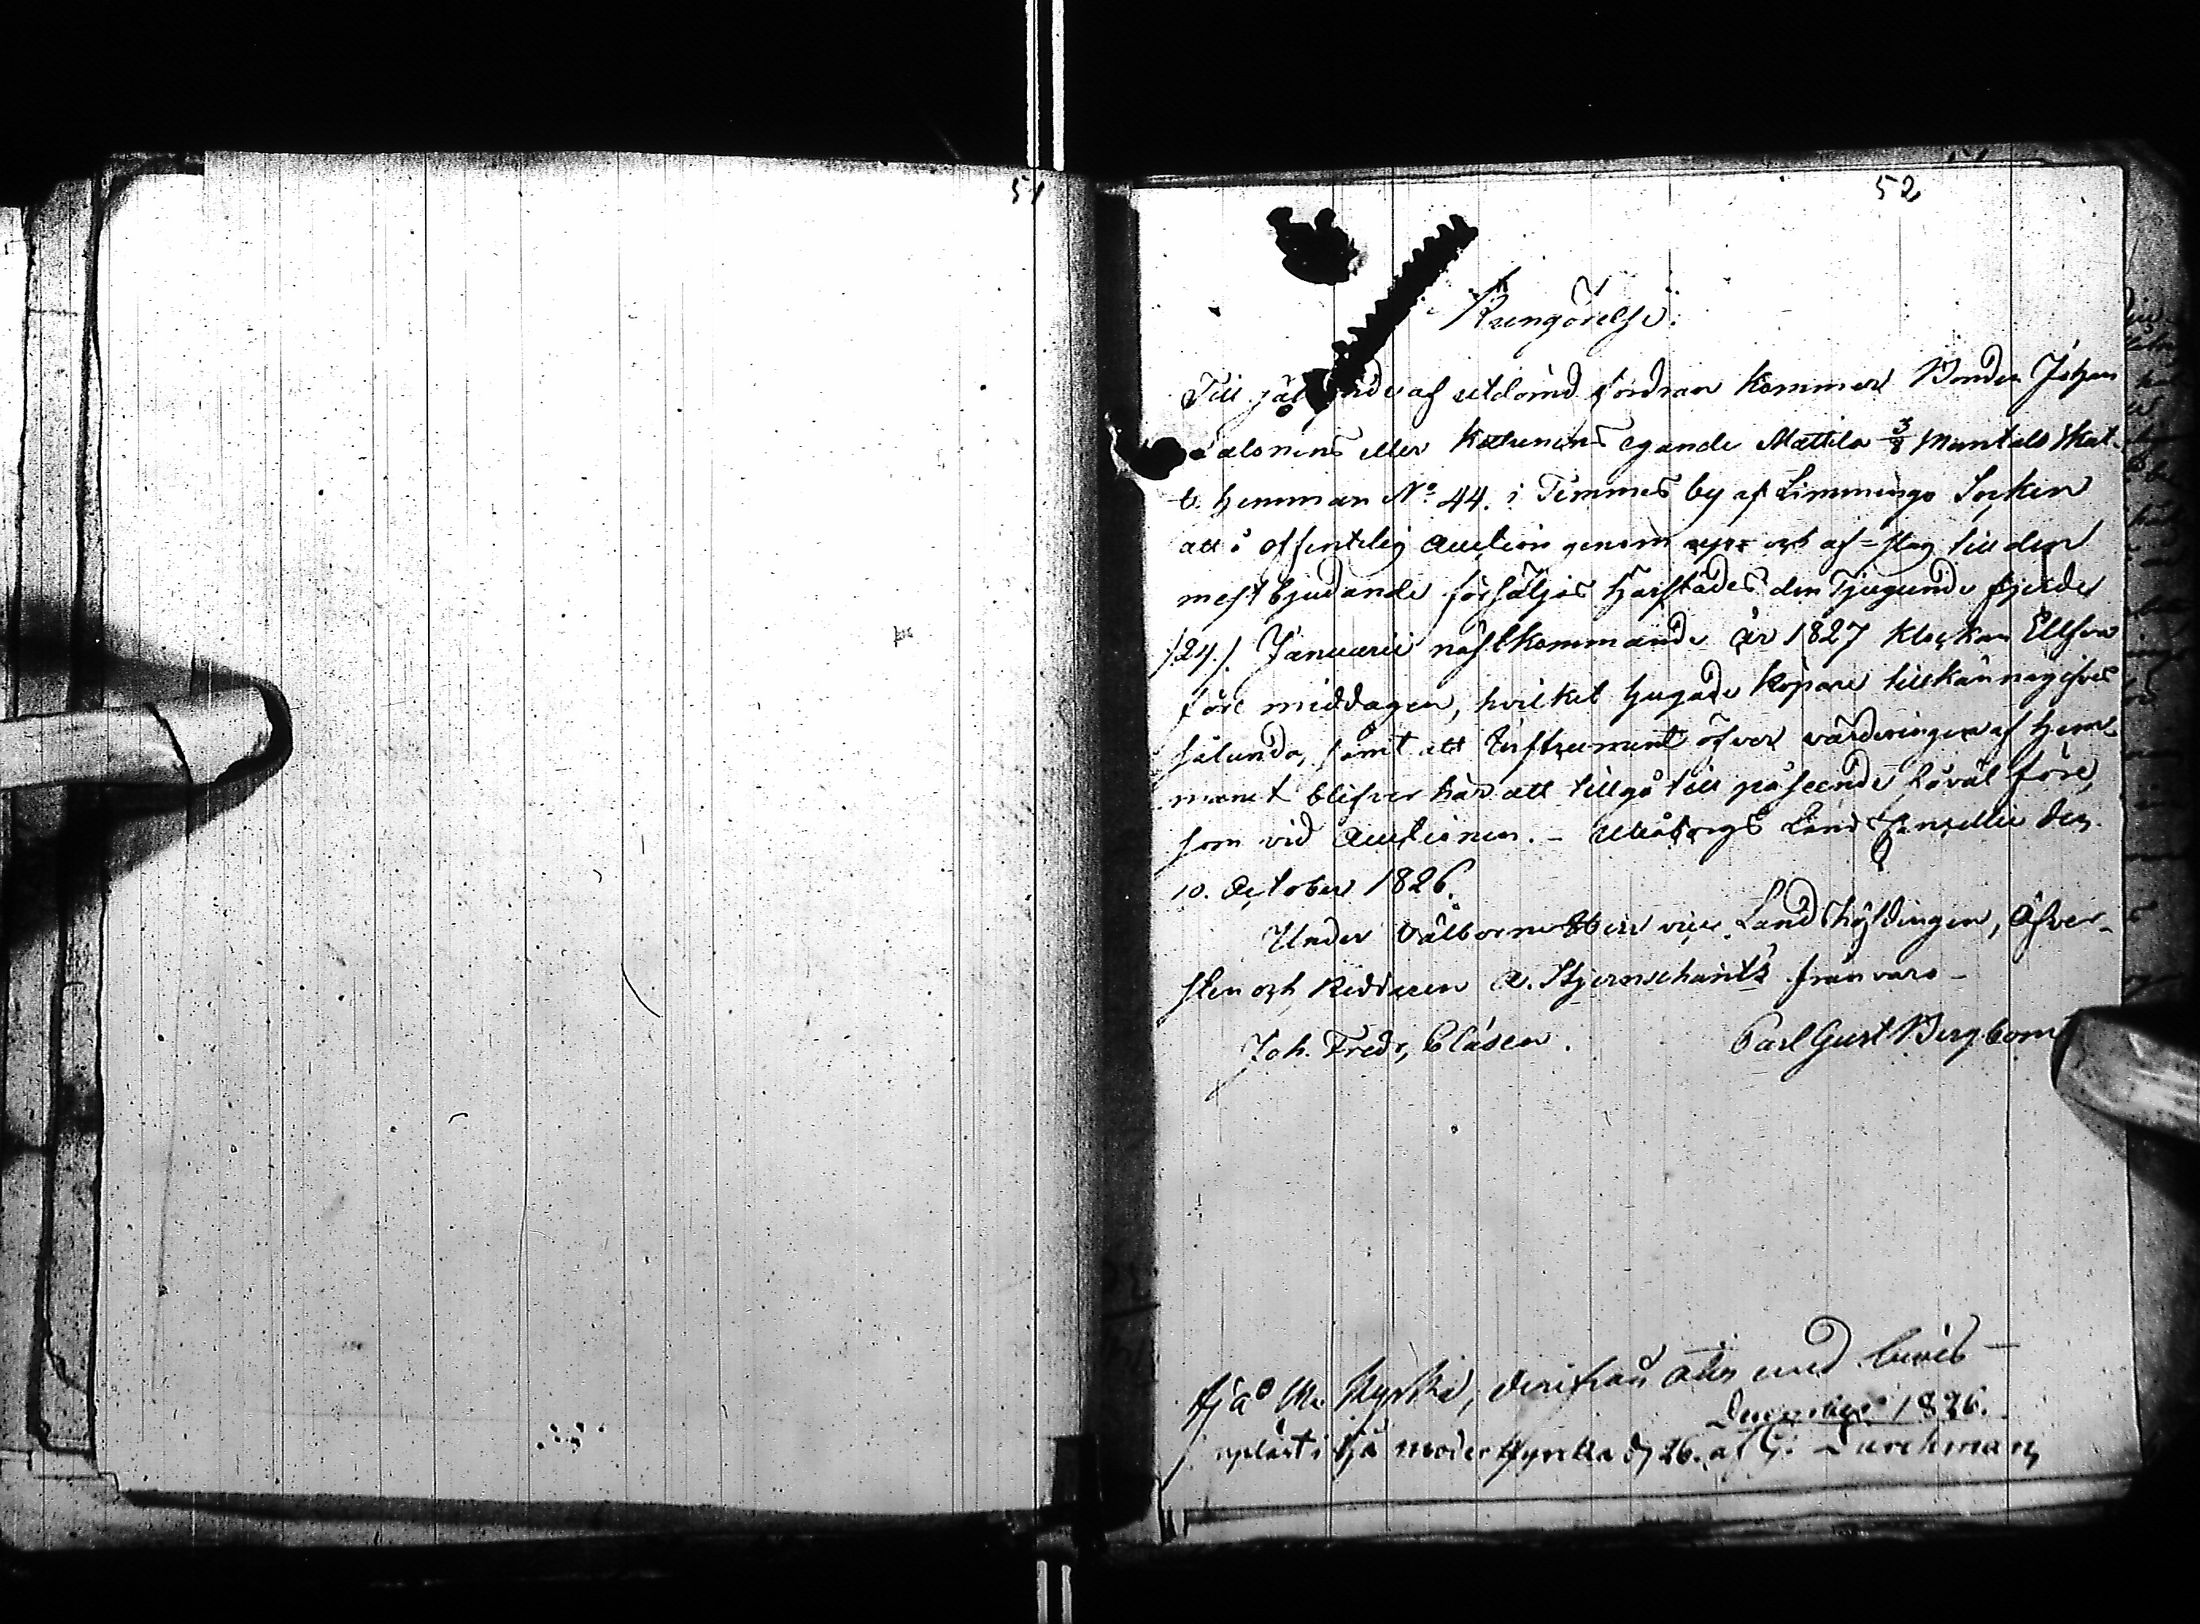 51
52
Kungörelse.
Till gäldande af utdömd fordran kommer Bonden Johan
alonens eller Kothunens egande Mattila 3/8 Mantals Skat-
te hemman No 44. i Temmes by af Limmingo Socken
att å offentelig Auction genom opp- och af-slag till den
mest bjudande försäljas härstädes den Tjugunde fjerde
/24./ Januarii nästkommande år 1827 klockan Ellfva
före middagen, hvilket hugade köpare tillkännagifves
sålunda, samt att Instrument öfver värderingen af hem-
manet blifver här att tillgå till påseende såväl före,
som vid Auctionen. - Uleåborgs Lands Cancellie den
10. October 1826.
Under Välborne Herr vice Landshöfdingen, Öfver-
sten och Riddaren A. Stjernschantz frånvaro -
Joh. Fredr. Clásen. Carl Gust Bergbom
Ijå Mr Kyrka, derifrån åter med bevis -
December 1826.
upläst i Ijå moder kyrcka d 26. af G. Durchman